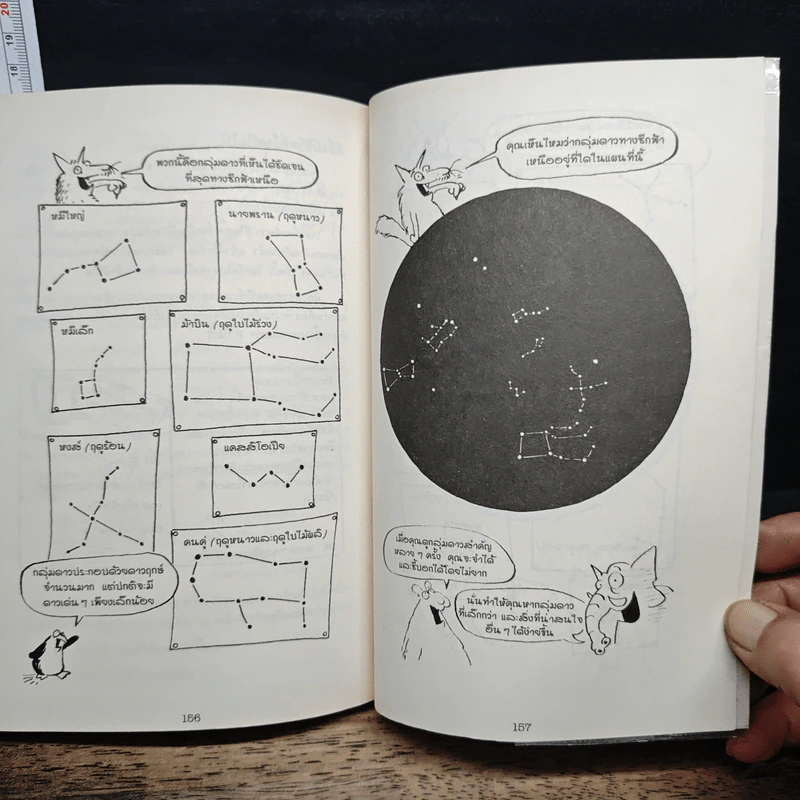 20
19
18
พวกนี้คือกลุ่มดาวที่เห็นได้ชัดเจน
ที่สุดทางซีกฟ้าเหนือ
หมีใหญ่
นายพราน (ฤดูหนาว)
หมีเล็ก
ม้าบิน (ฤดูใบไม้ร่วง)
หงส์ (ฤดูร้อน)
แคสสิโอเปีย
คนคู่ (ฤดูหนาวและฤดูใบไม้ผลิ)
กลุ่มดาวประกอบด้วยดาวฤกษ์
จำนวนมาก แต่ปกติจะมี
ดาวเด่น ๆ เพียงเล็กน้อย
156
คุณเห็นไหมว่ากลุ่มดาวทางซีกฟ้า
เหนืออยู่ที่ใดในแผนที่นี้
เมื่อคุณดูกลุ่มดาวสำคัญ
หลาย ๆ ครั้ง คุณจะจำได้
และชี้บอกได้โดยไม่ยาก
นั่นทำให้คุณหากลุ่มดาว
ที่เล็กกว่า และสิ่งที่น่าสนใจ
อื่น ๆ ได้ง่ายขึ้น
157